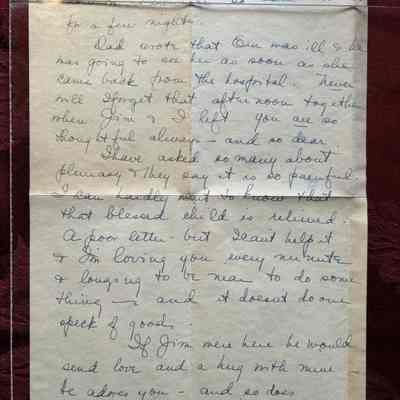 for a few nights.
Dad wrote that Em was ill & he
was going to see her as soon as she
came back from the hospital. Never
will I forget that afternoon together
when Jim & I left you are so
thoughtful always - and so dear.
I have asked so many about
pleurasy & they say it is so painful
I can hardly wait to know that
that blessed child is relieved.
A poor letter - but I can't help it
& I'm loving you every minute
& longing to be near to do some
thing - and it doesn't do one
speck of good.
If Jim were here he would
send love and a hug with mine
he adores you - and so does